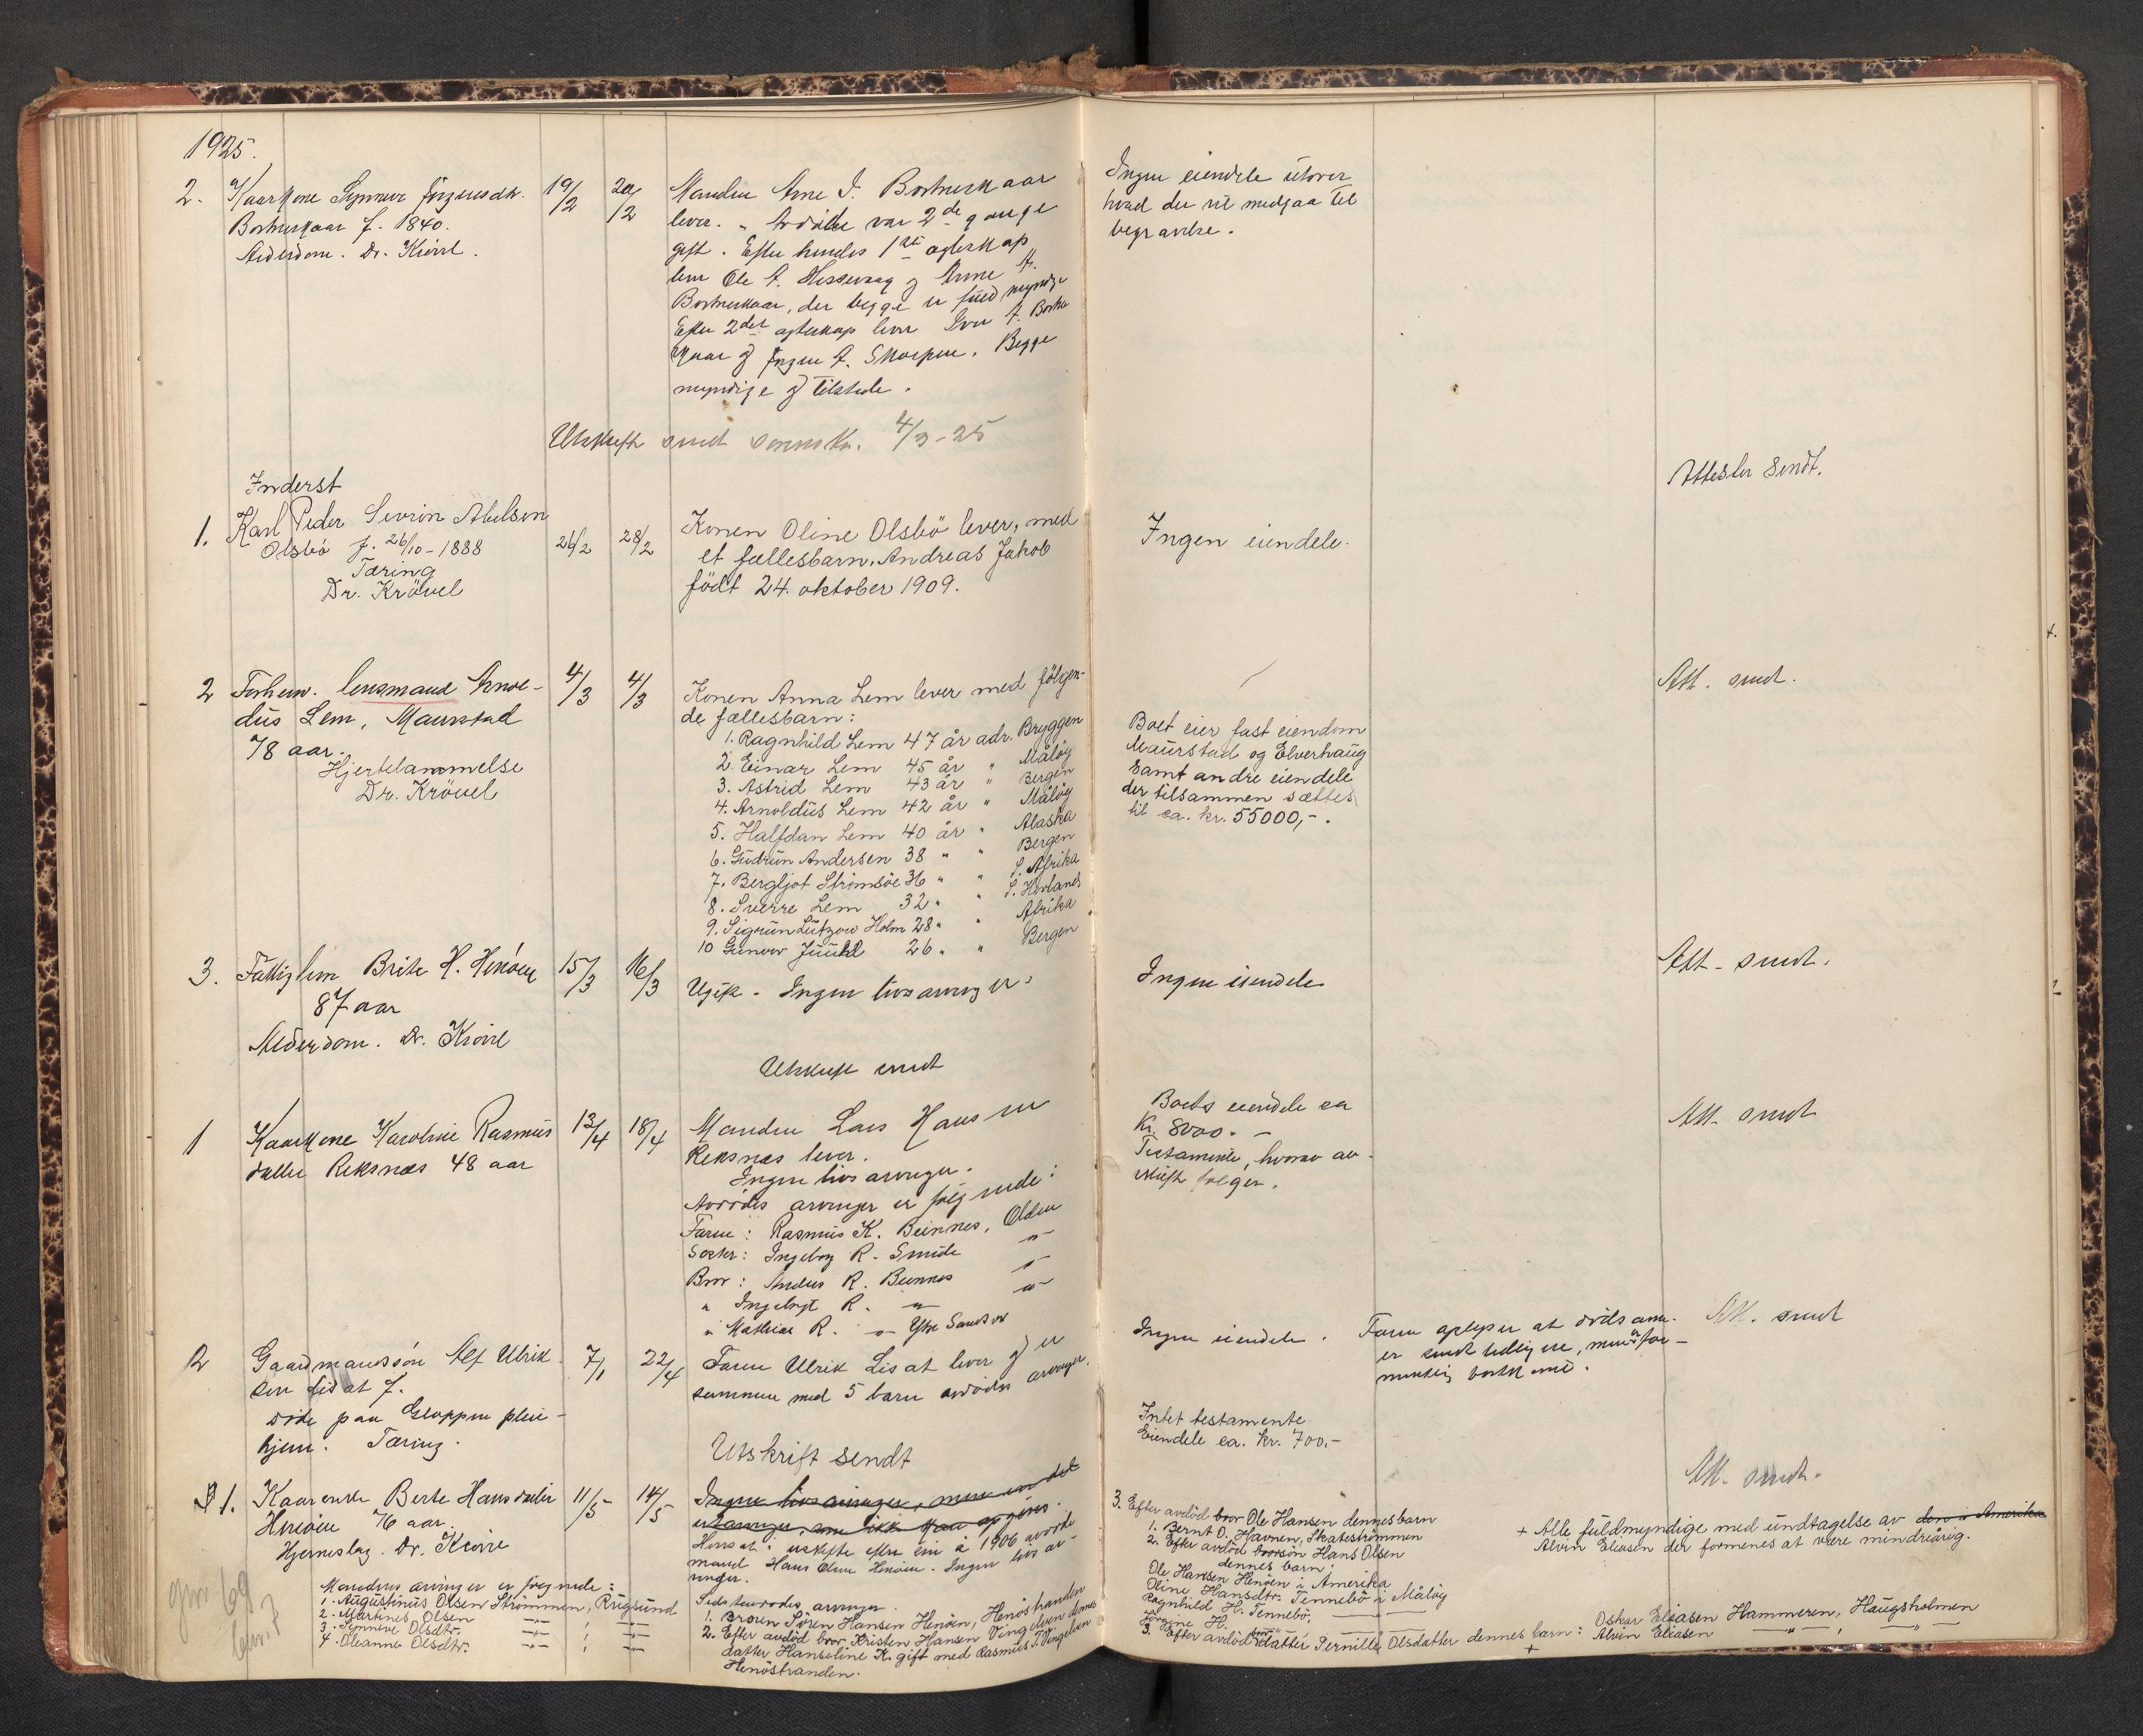 1925.
2. Kaarkone Synneve Jørgensdtr.
Bortneskaar f. 1840.
Alderdom. Dr. Krövel.
19/2
20/2
Manden Arne I. Bortneskaar
lever. Avdöde var 2de gange
gift. Efter hendes 1ste egteskap
lever Ole A. Hessevaag og Arne A.
Bortneskaar, der begge er fuldmyndige
Efter 2det egteskap lever Iver A. Bortne
skaar og Jørgen A. Skorpen. Begge
myndige og tilstede.
Ingen eiendele utover
hvad der vil medgaa til
begravelse.
Utskrift sendt 4/3-25
Attester sendt.
Inderst
1. Karl Peder Severin Abelsen
Olsbö f. 26/10-1888
Tæring
Dr. Krövel
26/2
28/2
Konen Oline Olsbö lever, med
et fællesbarn, Andreas Jakob
födt 24. oktober 1909.
Ingen eiendele.
2 Forhenv. lensmand Arnol-
dus Lem, Maurstad
78 aar.
Hjertelammelse
Dr. Krövel
4/3
4/3
Konen Anna Lem lever med fölgen-
de fællesbarn:
1. Ragnhild Lem 47 år adr. Bryggen
2. Einar Lem 45 år " Målöy
3. Astrid Lem 43 år " Bergen
4. Arnoldus Lem 42 år " Målöy
5. Halfdan Lem 40 år " Alaska
6. Gudrun Andersen 38 " " Bergen
7. Bergljot Strömsöe 36 " " S. Afrika
8. Sverre Lem 32 " " S.
9. Sigrun Lützow Holm 28 " " Afrika
10 Gunvor Juuhl 26 " " Bergen
Boet eier fast eiendom
Maurstad og Elverhaug
samt andre eiendele
der tilsammen sættes
til ca. kr. 55000,-.
Att. sendt.
3. Fattiglem Brite H. Henöen
87 aar
Alderdom. Dr. Krövel
15/3
16/3
Ugift. Ingen livsarvinger.
Ingen eiendele
Att. sendt.
Utskrift sendt
1 Kaarkone Karoline Rasmus
datter Reksnæs 48 aar
13/4
18/4
Manden Lars Hansen
Reksnæs lever.
Ingen livsarvinger.
Avdödes arvinger er følgende:
Faren: Rasmus K. Beinnes, Olden
Søster: Ingeborg R. Smide "
Bror: Anders R. Beinnes "
" Ingebrigt R. " "
" Mathias R. "
Boets eiendele ca
Kr. 8000.-
Testamente, hvorav av-
skrift følger.
Att. sendt
2 Gaardmandssön Alf Ulrik-
sen Lisæt f.
Döde paa Gloppen pleie-
hjem. Tæring.
7/1
22/4
Faren Ulrik Lisæt lever og er
sammen med 5 barn avdödes arvinger.
Ingen eiendele.
Faren oplyser at dödsanm.
er sendt tidligere, men for-
mentlig bortkommet.
Att. sendt
Utskrift sendt
1. Kaarenke Berte Hansdatter
Henöen 76 aar.
Hjerneslag. Dr. Krövel
11/5
14/5
Ingen livsarvinger, men en del
utarvinger, som ikke kan opgives.
Hensat i uskifte efter sin i 1906 avdöde
mand Hans Olsen Henöen. Ingen livsar-
vinger.
Intet testamente
Eiendele ca. kr. 700.-
Att. sendt.
Mandens arvinger er følgende:
1. Augustinus Olsen Strömmen, Rugsund
2. Martines Olsen
3. Synneve Olsdtr.
4. Oleanna Olsdtr.
gnr 69
bnr. 7
Sidstavdödes arvinger.
1. Broren Sören Hansen Henöen, Henöstranden
2. Efter avdöd bror Kristen Hansen Vingelven dennes
datter Hanseline K. gift med Rasmus T. Vingelven
Henöstranden.
3. Efter avdöd bror Ole Hansen dennes barn
1. Bernt O. Havnen, Skateströmmen
2. Efter avdöd brorsön Hans Olsen
dennes barn:
Ole Hansen Henöen i Amerika
Oline Hansdtr. Tennebö i Målöy
Ragnhild H. Tennebö,
Jörgine H.
3. Efter avdöd brordatter Pernille Olsdatter dennes barn: Oskar Eliasen Hammeren, Haugsholmen
Alvin Eliasen
+ Alle fuldmyndige med undtagelse av dem i Amerika
Alvin Eliasen der formenes at være mindreårig.